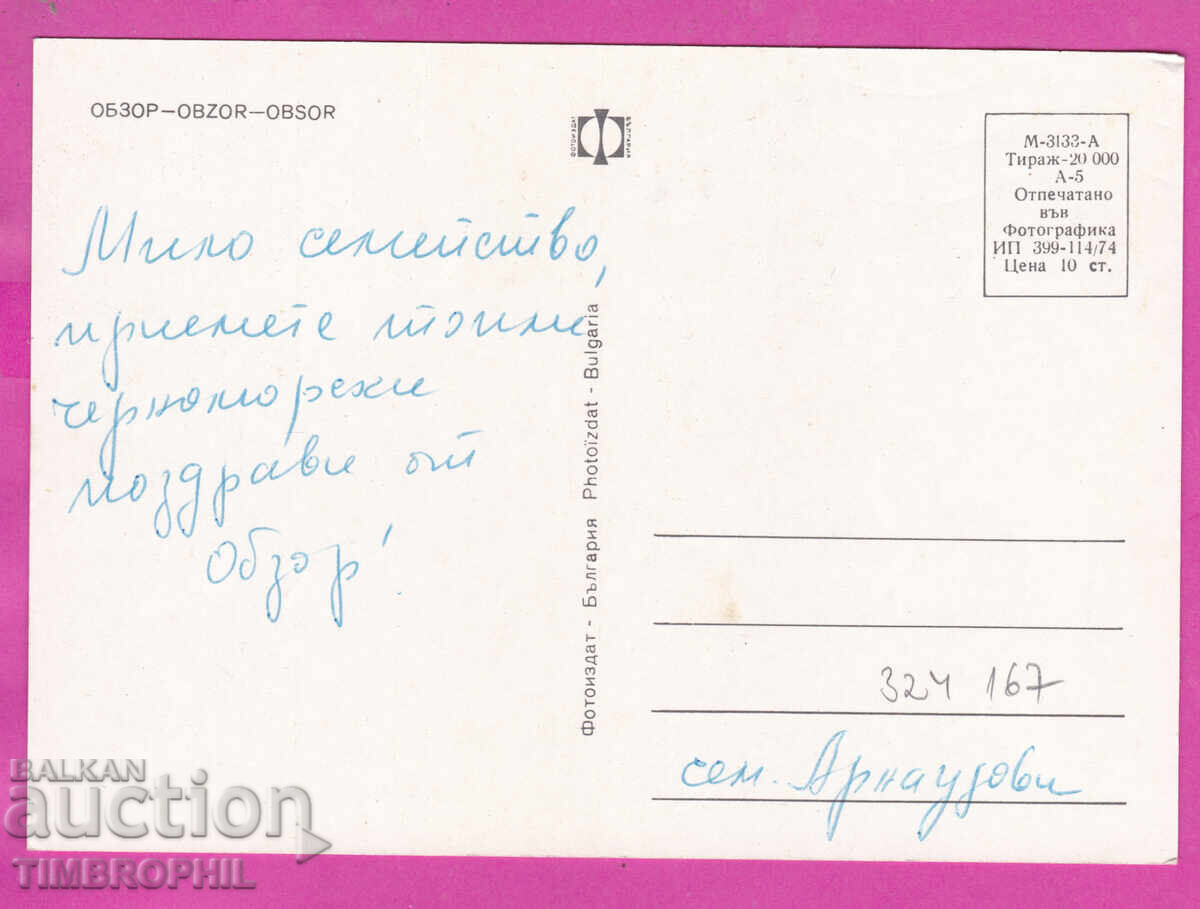 ОБЗОР—OBZOR—OBSOR
ФОТОИЗДАТ
БЪЛГАРИЯ
М-3133-А
Тираж-20 000
А-5
Отпечатано
във
Фотографика
ИП 399-114/74
Цена 10 ст.
Мило семейство,
приемете топли
черноморски
поздрави от
Обзор!
Фотоиздат - България Photoïzdat - Bulgaria
324 167
сем. Арнаудови
BALKAN
auction
TIMBROPHIL